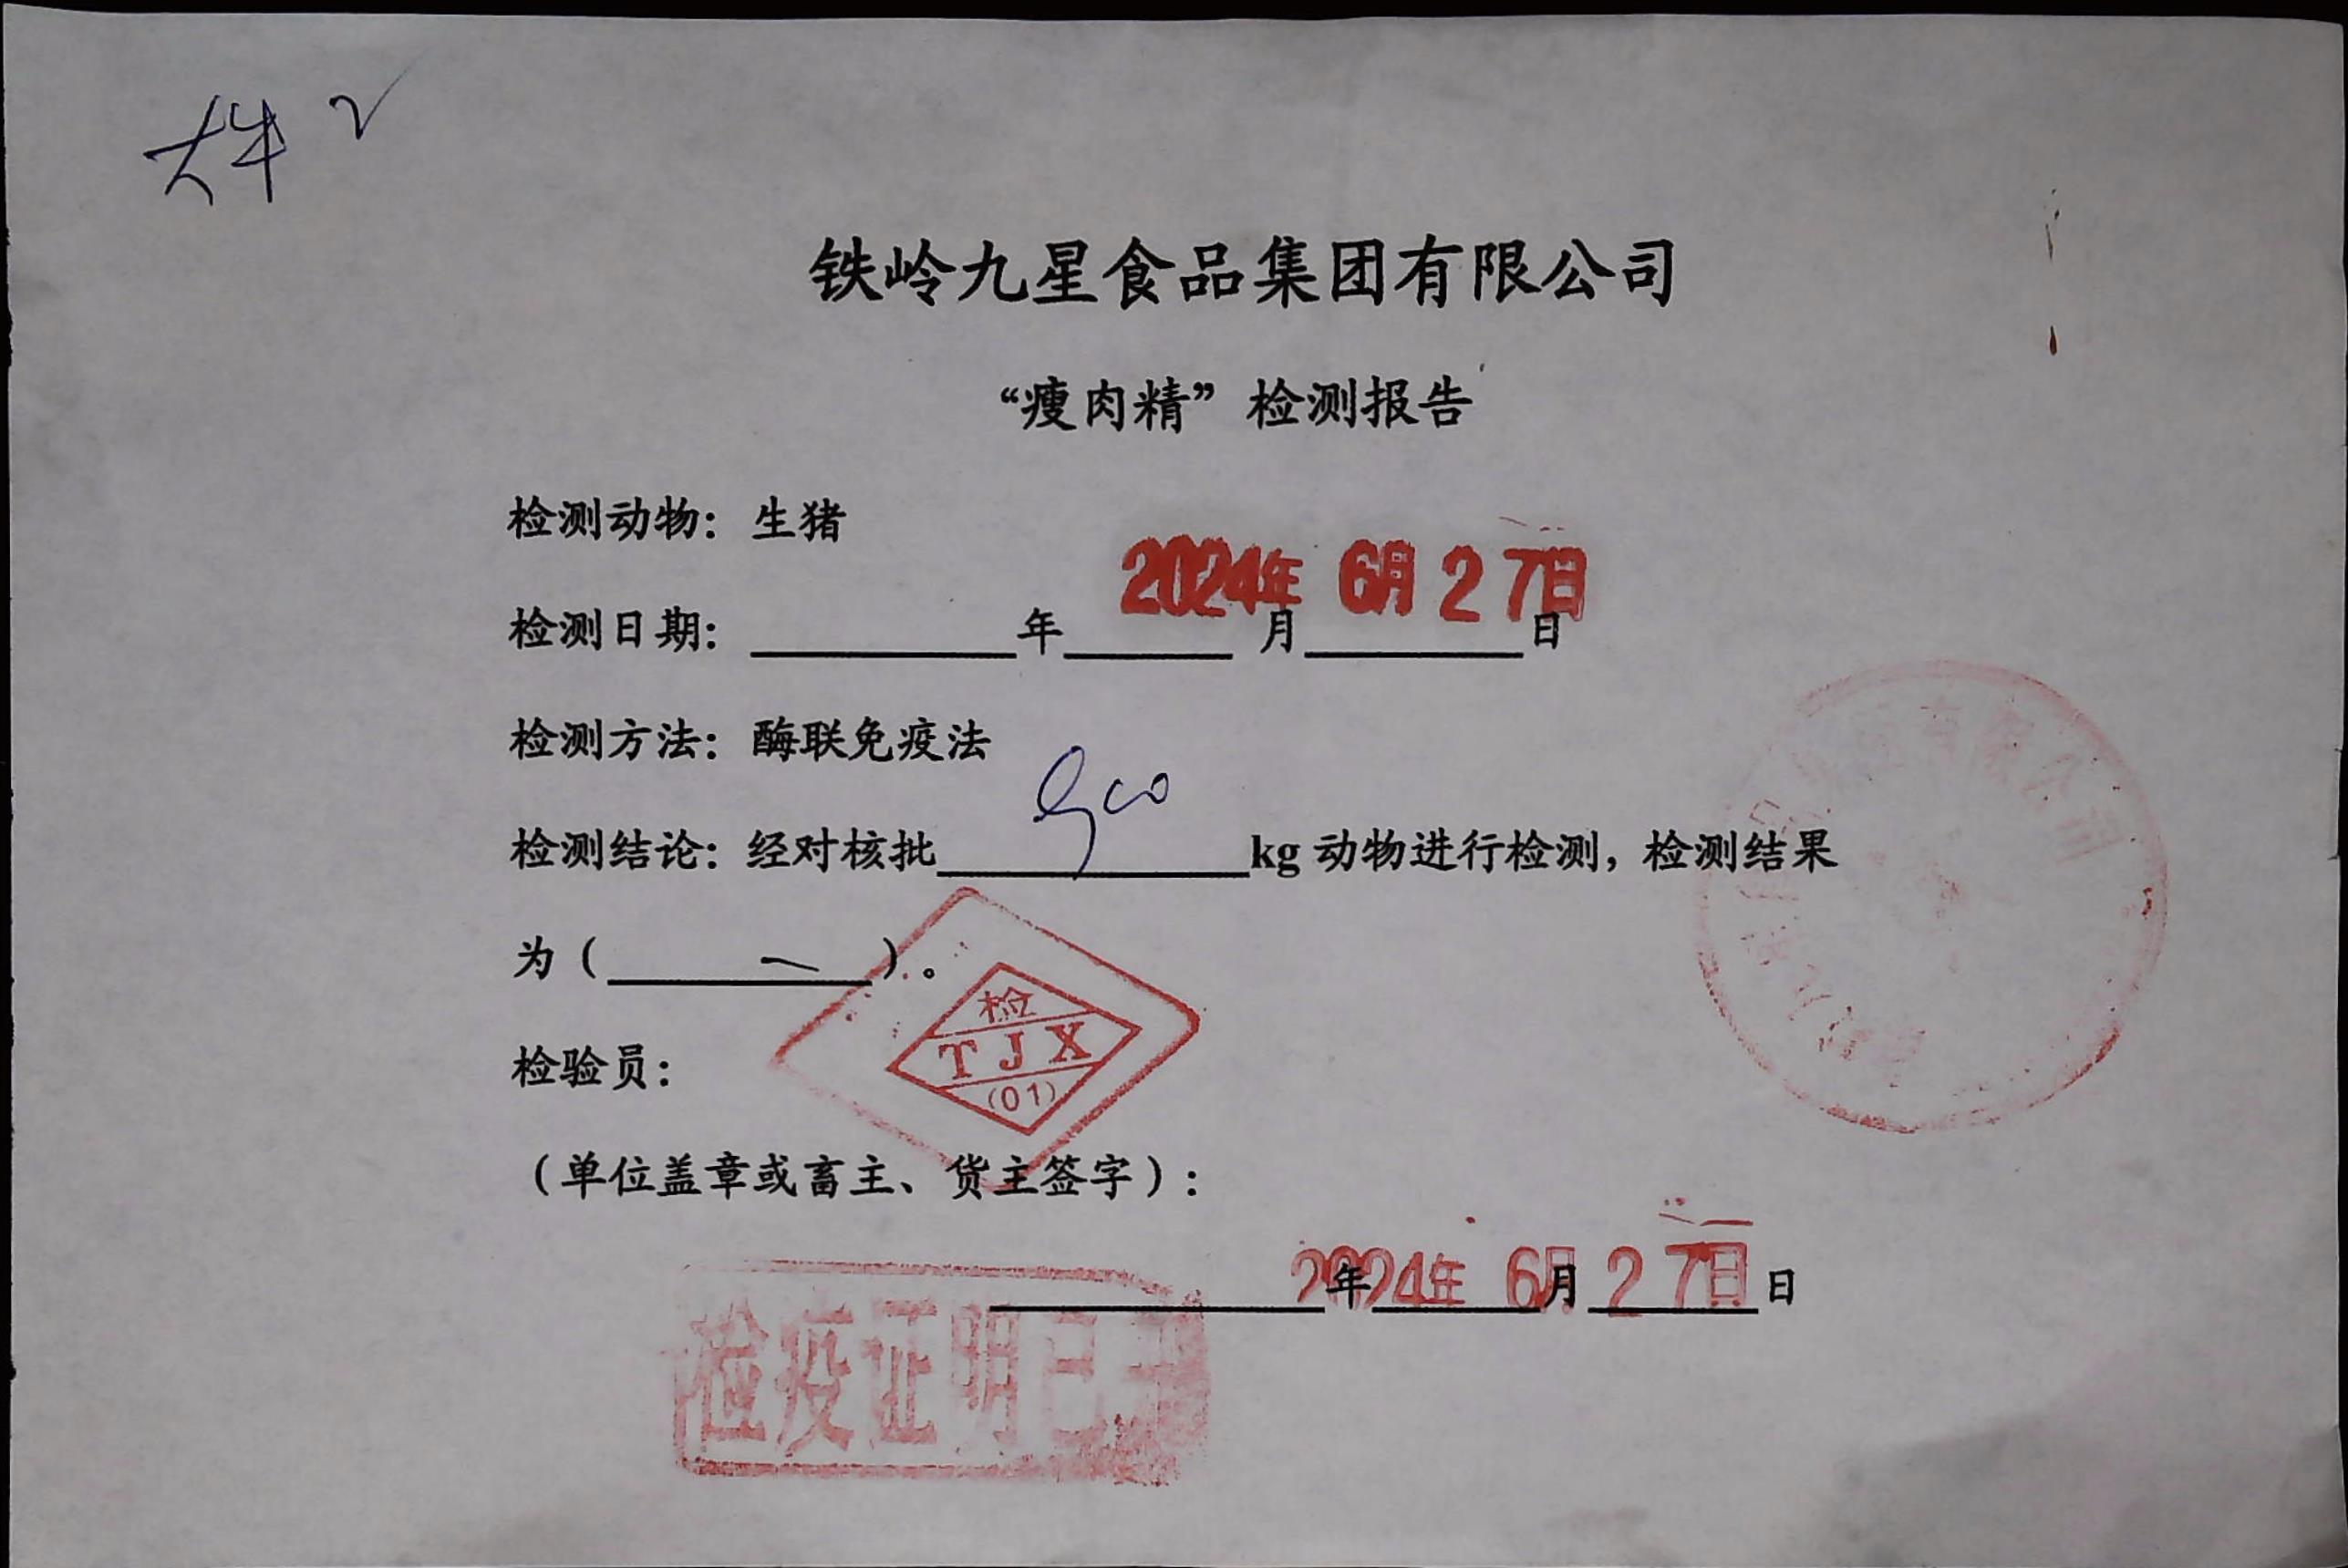 铁岭九星食品集团有限公司
“瘦肉精”检测报告
检测动物：生猪
2024年 6月 27日
检测日期：________年______月______日
检测方法：酶联免疫法
检测结论：经对核批 900 kg 动物进行检测，检测结果
为（ — ）。
检
TJX
(01)
检验员：
（单位盖章或畜主、货主签字）：
2024年 6月 27日
年 月 日
检疫证明已
有限公司